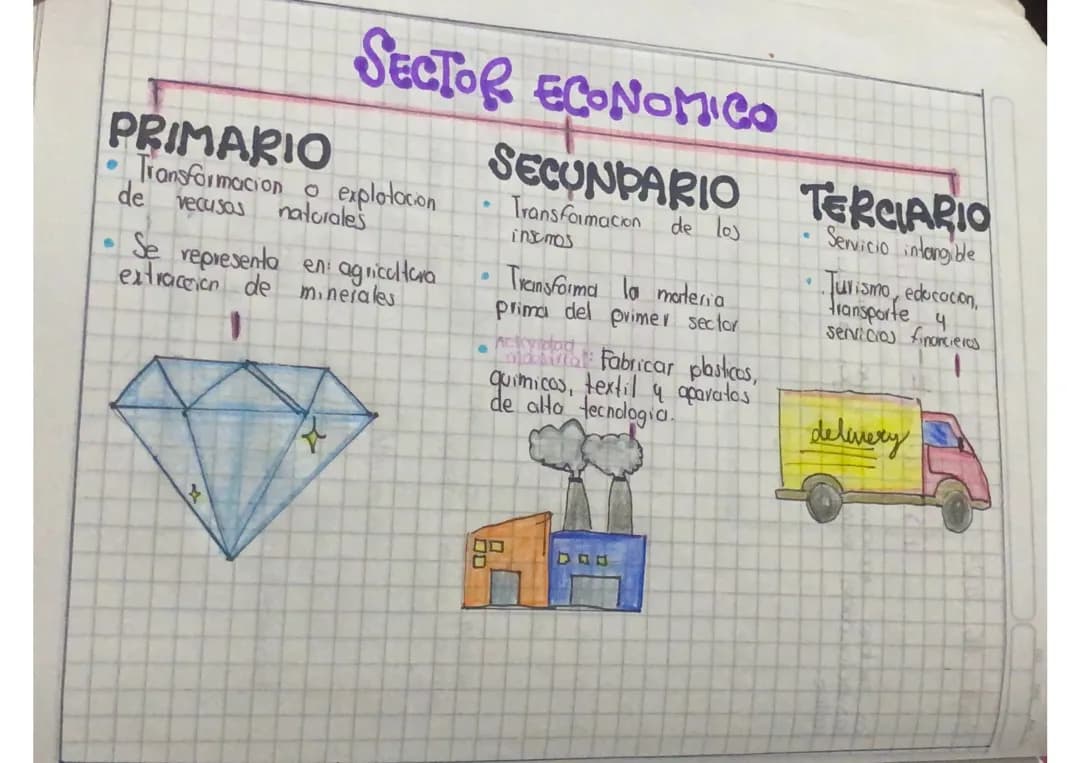 SECTOR ECONOMICO
PRIMARIO
• Transformacion o explotacion
de recusas naturales
• Se representa en: agricultura
extraccion de minerales
SECUNDARIO
• Transformacion de los
insumos
• Transforma la materia
prima del primer sector
• Actividad
industrial: Fabricar plasticos,
quimicos, textil y aparatos
de alta tecnologia.
TERCIARIO
• Servicio intangible
• Turismo, educacion,
transporte y
servicios financieros
delivery